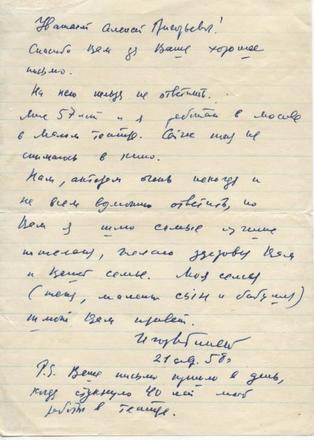 Уважаемый Алексей Григорьевич!
Спасибо Вам за Ваше хорошее
письмо.
На него нельзя не ответить.
Мне 57 лет и я работаю в Москве
в Малом театре. Сейчас не
снимаюсь в кино.
Нам, актерам очень некогда и
не всем возможно ответить, но
Вам я шлю самые лучшие
пожелания, желаю здоровья Вам
и Вашей семье. Моя семья
(жена, сын и бабушка)
шлют Вам привет.
21 58г
P.S. Ваше письмо пришло в день,
когда стукнуло 40 лет моей
работы в театре.